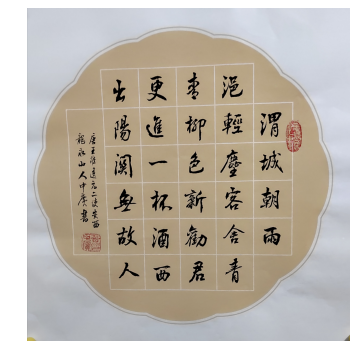 渭城朝雨
浥輕塵客舍青
青柳色新勸君
更進一杯酒西
出陽關無故人
唐王維送元二使安西
山人中書